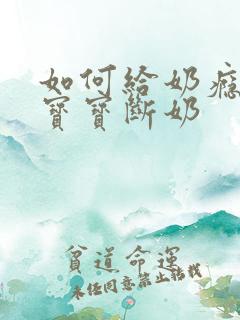 如何给奶瘾
寶寶斷奶
貧道命运
未经同意禁止转载